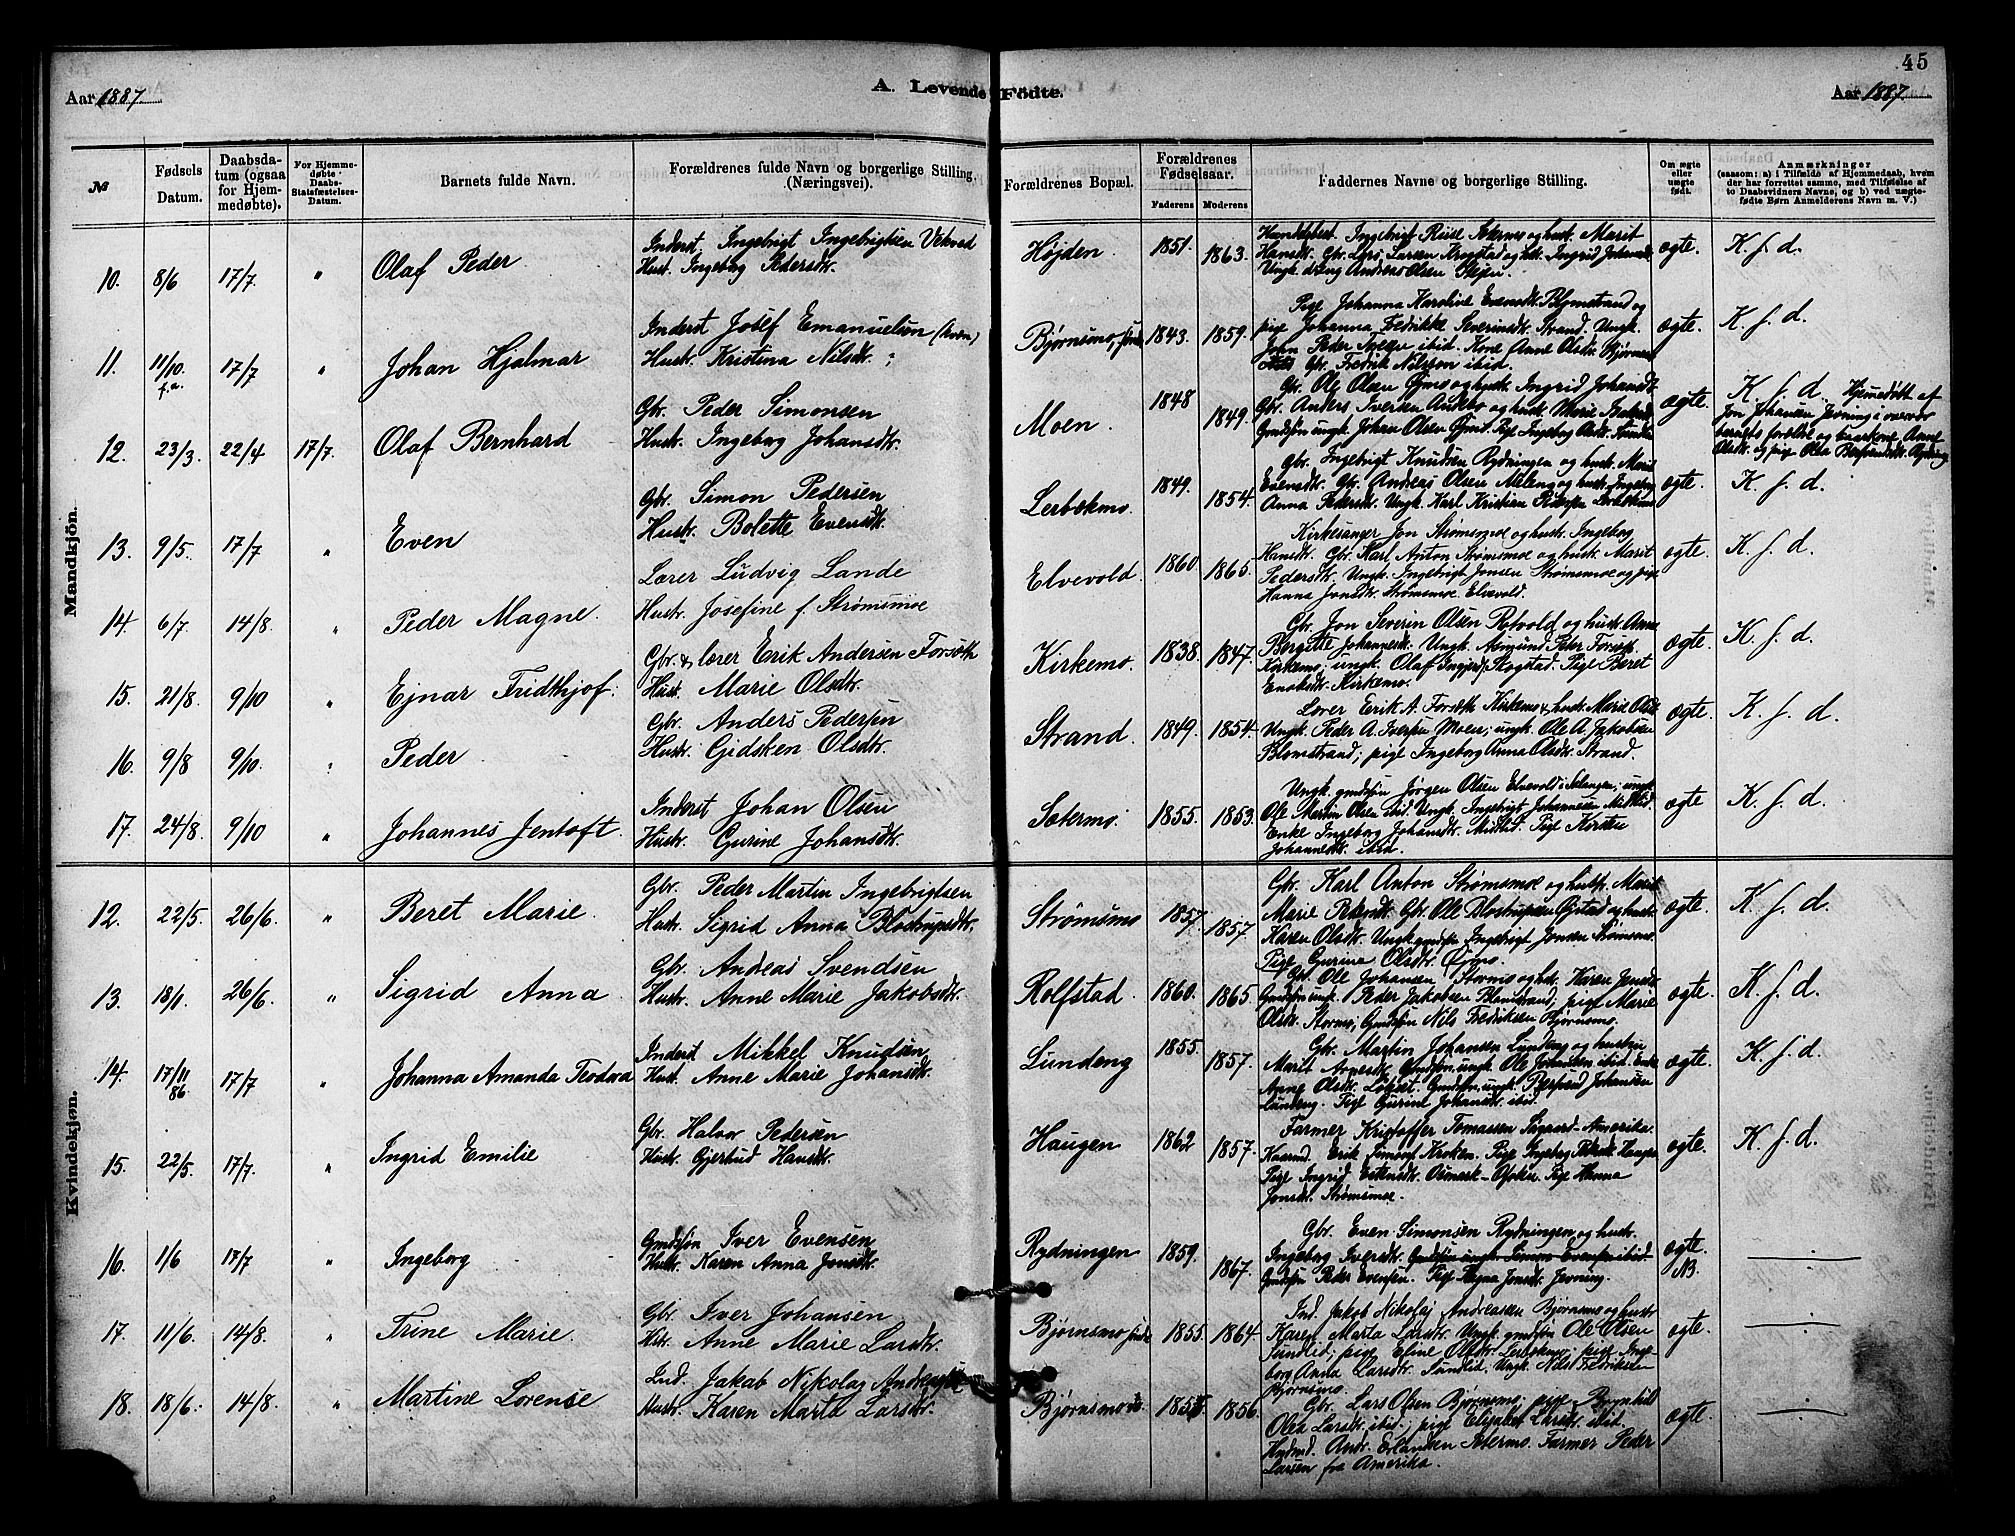 45
Aar 1887.
A. Levende Fødte.
Aar 1887.
№
Fødsels Datum.
Daabsdatum (ogsaa for Hjemmedøbte).
For Hjemmedøbte Daabs-Statsfæstelses-Datum.
Barnets fulde Navn.
Forældrenes fulde Navn og borgerlige Stilling, (Næringsvei).
Forældrenes Bopæl.
Forældrenes Fødselsaar.
Faderens
Moderens
Faddernes Navne og borgerlige Stilling.
Om ægte eller uægte født.
Anmærkninger
(saasom: a) i Tilfælde af Hjemmedaab, hvem der har forrettet samme, med Tilføielse af to Daabsvidners Navne, og b) ved uægtefødte Børn Anmelderens Navn m. V.)
Mandkjön.
10. 8/6 17/7 " Olaf Peder
Inderst Ingebrigt Ingebrigtsen Vekved
Hust. Ingeborg Pedersdtr.
Højden 1851. 1863.
Ingebrigt Sætermo og hust. Marit
Hansdtr. Gbr. Lars Larsen Krogstad og hst. Ingrid
Ungk. dreng Andreas Olsen
ægte. K. f. d.
11. 11/10 f.a. 17/7 " Johan Hjalmar
Inderst Josef Emanuelsen
Hustr. Kristina Nilsdtr.
Bjørnsmo 1843. 1859.
Pige Johanna Karoline Evensdtr. Blomstrand og
pige Johanna Fredrikke Severinsdtr. Strand. Ungk.
John Peder Iversen ibid. Kone Anne Olsdtr. Bjørnsmo
Gbr. Fredrik Nilsson ibid.
ægte. K. f. d.
12. 23/3. 22/4 17/7. Olaf Bernhard
Gbr. Peder Simonsen
Hustr. Ingeborg Johansdtr.
Moen. 1848 1849.
Gbr. Ole Olsen og hustr. Ingrid Johansdtr.
Gbr. Anders Iversen og hustr. Marie
Gmdsøn ungk. Johan Olsen Pige Ingeborg Olsdtr.
ægte. K. f. d. Hjemedøbt af
Jon Johansen Jevning i overvær
forældre og kaarkone Anne
Olsdtr. og pige Olea Rydning
13. 9/5. 17/7 " Even
Gbr. Simon Pedersen
Hustr. Bolette Evensdtr.
Lerbekmo. 1849. 1854.
Gbr. Ingebrigt Knudsen Rydningen og hustr. Marit
Evensdtr. Gbr. Andreas Olsen og hustr. Ingeborg
Anna Pedersdtr. Ungk. Karl Kristian
ægte. K. f. d.
14. 6/7. 14/8. " Peder Magne.
Lærer Ludvig Lande
Hustr. Josefine f. Strømsmoe
Elvevold. 1860 1865.
Kirkesanger Jon Strømsmoe og hustr. Ingeborg
Hansdtr. Gbr. Karl Anton Strømsmoe og hustr. Marit
Pedersdtr. Ungk. Ingebrigt Jonsen Strømsmoe og pige
Hanna Jonsdtr. Strømsmoe. Elvevold.
ægte. K. f. d.
15. 21/8. 9/10 " Ejnar Fridthjof.
Gbr. & lærer Erik Andersen Forseth
Hust. Marie Olsdtr.
Kirkemo. 1838. 1847.
Gbr. Jon Severin Olsen Retvold og hustr. Anne
Bergitte Johannesdtr. Ungk. Asmund Peter Forseth
Kirkemo; ungk. Olaf Skogstad. Pige Beret
Kirkemo.
ægte. K. f. d.
16. 9/8 9/10. " Peder
Gbr. Anders Pedersen
Hustr. Gjidsken Olsdtr.
Strand. 1849. 1854.
Lærer Erik A. Forseth Kirkemo & hust. Marie Olsdtr.
Ungk. Peder A. Iversen Moen; ungk. Ole A. Jakobsen
Blomstrand; pige Ingeborg Anna Olsdtr. Strand.
ægte. K. f. d.
17. 24/8. 9/10 " Johannes Jentoft.
Inderst Johan Olsen
Hustr. Gurine Johansdtr.
Sætermo. 1855. 1853.
Ungk. gmdsøn Jørgen Olsen Elvevold i Salangen; ungk.
Ole Martin Olsen ibid. Ungk. Ingebrigt Johannesen Midtlid.
Enke Ingeborg Johansdtr. Midtlid. Pige Kirsten
Johannesdtr. ibid.
ægte K. f. d.
Kvindekjøn.
12. 22/5. 26/6. " Beret Marie.
Gbr. Peder Martin Ingebrigtsen
Hustr. Sigrid Anna Blostrupsdtr.
Strømsmo 1857. 1857.
Gbr. Karl Anton Strømsmoe og hustr. Marit
Marie Pedersdtr. Gbr. Ole Blostrupsen Øystad og hustr.
Karen Olsdtr. Ungk. gmdsøn Ingebrigt Jonsen Strømsmo.
Pige Gurine Olsdtr.
ægte. K. f. d.
13. 18/1. 26/6. " Sigrid Anna
Gbr. Andreas Svendsen
Hustr. Anne Marie Jakobsdtr.
Rolfstad. 1860. 1865.
Gbr. Ole Johansen Stormo og hst. Karen Jensdtr.
Gmdsøn ungk. Peder Jakobsen Blomstrand; pige Marie
Olsdtr. Stormo; Gmdsøn Nils Fredriksen Bjørnsmo.
ægte. K. f. d.
14. 17/11 86 17/7 " Johanna Amanda Teodora
Inderst Mikkel Knudsen
Hust. Anne Marie Johansdtr.
Lundeng 1855. 1857.
Gbr. Martin Johansen Lundeng og hustru
Marit Arnesdtr. Gmdsøn ungk. Ole Johansen ibid. Enke
Anne Olsdtr. Gmdsøn ungk. Johansen
Lundeng. Pige Gurine Johansdtr. ibid.
ægte. K. f. d.
15. 22/5. 17/7. " Ingrid Emilie
Gbr. Halvor Pedersen
Hust. Gjertrud Hansdtr.
Haugen 1862 1857.
Farmer Kristoffer Tomassen Amerika.
Kaarmd. Erik Simonsen Kroken. Pige Ingeborg
Pige Ingrid Pige Hanna
Jonsdtr. Strømsmoe.
ægte. K. f. d.
16. 1/6 17/7 " Ingeborg
Gmdsøn Iver Evensen
Hustr. Karen Anna Jonsdtr.
Rydningen 1859. 1867.
Gbr. Even Simonsen Rydningen og hustr.
Ingeborg Iversdtr. Gmdsøn ungk. Simon Evensen ibid.
Gmdsøn Peder Evensen. Pige Jonsdtr. Jevning.
ægte. NB.
17. 11/6. 14/8. " Trine Marie.
Gbr. Iver Johansen
Hst. Anne Marie Larsdtr.
Bjørnsmo 1855. 1864.
Ind. Jakob Nikolaj Andreassen Bjørnsmo og hustr.
Karen Marta Larsdtr. Ungk. gmdsøn Ole Olsen
Sundlid; pige Eline Olsdtr. Lerbekmo; pige Inge-
borg Anna Larsdtr. Sundlid. Ungk. Nils Fredriksen
Bjørnsmo.
ægte.
18. 18/6. 14/8. " Martine Lorense
Ind. Jakob Nikolaj Andreassen
Hustr. Karen Marta Larsdtr.
Bjørnsmo 1856.
Gbr. Lars Olsen Bjørnsmo; pige Brynhild
Olea Larsdtr. ibid.; pige Elisabet Larsdtr. ibid.
Andr. Erlandsen Sætermo. Farmer Peder
Larsen fra Amerika.
ægte.